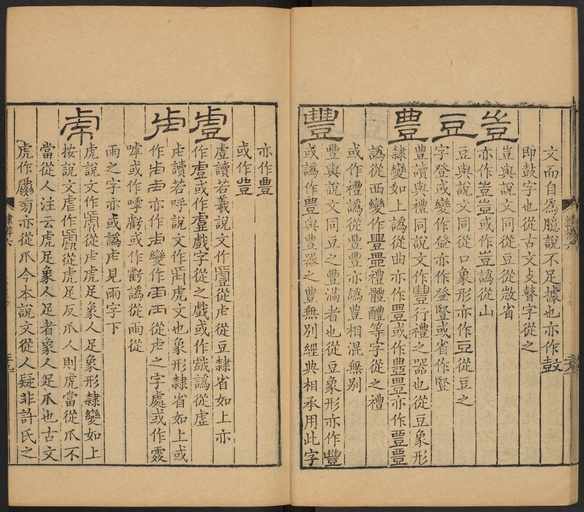 文而自為臆說不足據也亦作鼓
即鼓字也從古文攴鼗字從之
豈
豈與說文同從豆從省
亦作豈或作豈譌從山
豆
豆與說文同從口象形亦作豆從豆之
字登或作登亦作豎或省作堅
豊
豊讀與禮同說文作豊行禮之器也從豆象形
隸變如上譌從曲亦作豊或作豊亦作
譌從西變作禮體醴等字從之禮
或作禮譌從豊亦譌豐相混無別
豐
豐與說文同豆之豐滿者也從豆象形亦作豐
或譌作豊與豊器之豊無別經典相承用此字
亦作豊
或作豈
䖒
䖒讀若羲說文作從虍從豆隸省如上亦
作或作戲字從之戲或作譌從虛
虍
虍讀若呼說文作虎文也象形隸省如上或
作亦作變作從虍之字處或作
嘑或作呼虧或作虧譌從雨從
雨之字亦或譌虍見雨字下
虎
虎說文作從虍虎足象人足象形隸變如上
按說文虐作從虎足反爪人則虎當從爪不
當從人注云虎足象人足者象人足爪也古文
虎作亦從爪今本說文從人疑非許氏之